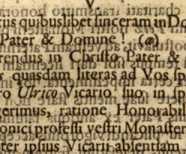 V
sus quibuslibet sinceram in D
Pater & Domine! (a)
rendus in Christo Pater &
quasdam literas ad Vos sp
o Ulrico Vicario suo in sp
gerimus, ratione Honorabil
onici professi vestri Monaster
ter ipsius Vicarii ablentam